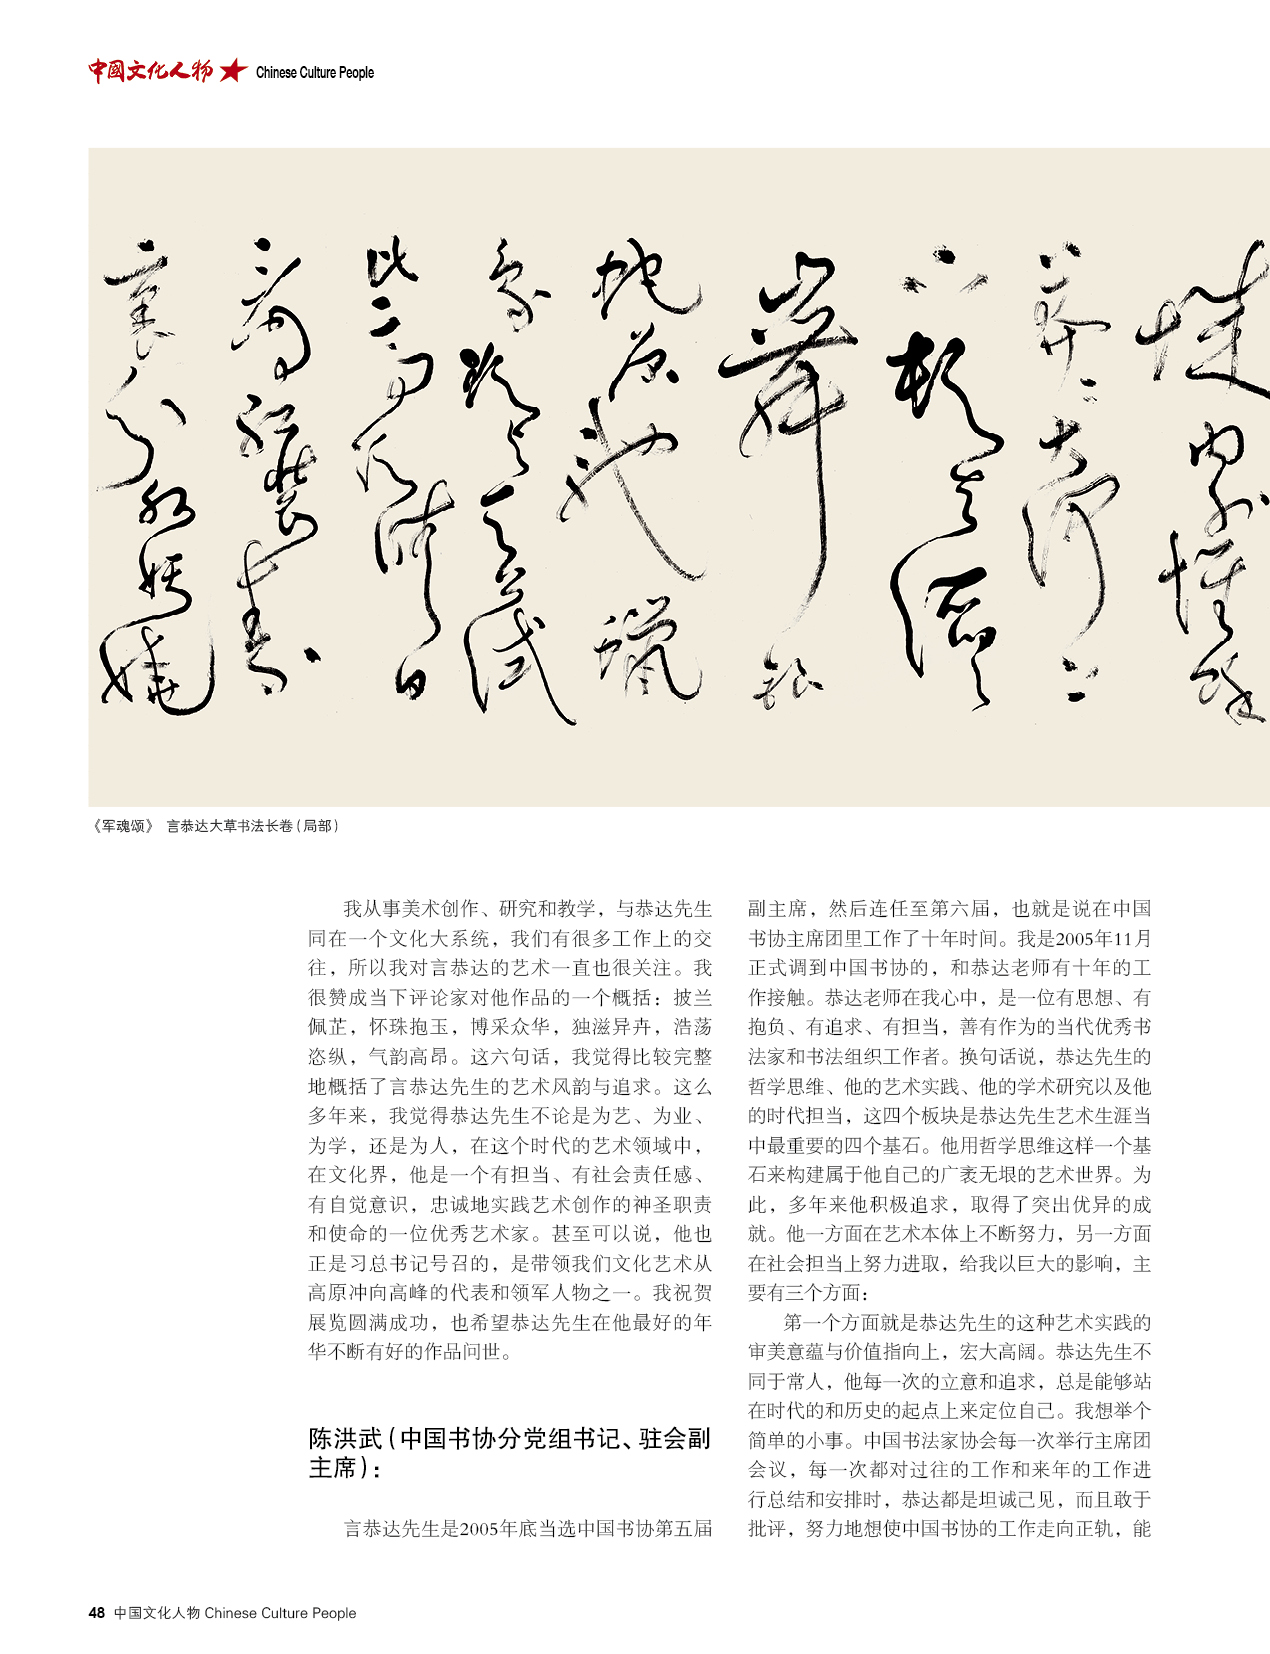 中國文化人物 Chinese Culture People
城内外惟馀
莽莽大河上
下顿失滔滔
山舞银
蛇原驰蜡
象欲与天公试
比高须晴日
看红装素
裹分外妖娆
《军魂颂》 言恭达大草书法长卷（局部）
我从事美术创作、研究和教学，与恭达先生
同在一个文化大系统，我们有很多工作上的交
往，所以我对言恭达的艺术一直也很关注。我
很赞成当下评论家对他作品的一个概括：披兰
佩芷，怀珠抱玉，博采众华，独滋异卉，浩荡
恣纵，气韵高昂。这六句话，我觉得比较完整
地概括了言恭达先生的艺术风韵与追求。这么
多年来，我觉得恭达先生不论是为艺、为业、
为学，还是为人，在这个时代的艺术领域中，
在文化界，他是一个有担当、有社会责任感、
有自觉意识，忠诚地实践艺术创作的神圣职责
和使命的一位优秀艺术家。甚至可以说，他也
正是习总书记号召的，是带领我们文化艺术从
高原冲向高峰的代表和领军人物之一。我祝贺
展览圆满成功，也希望恭达先生在他最好的年
华不断有好的作品问世。
陈洪武（中国书协分党组书记、驻会副
主席）：
言恭达先生是2005年底当选中国书协第五届
副主席，然后连任至第六届，也就是说在中国
书协主席团里工作了十年时间。我是2005年11月
正式调到中国书协的，和恭达老师有十年的工
作接触。恭达老师在我心中，是一位有思想、有
抱负、有追求、有担当，善有作为的当代优秀书
法家和书法组织工作者。换句话说，恭达先生的
哲学思维、他的艺术实践、他的学术研究以及他
的时代担当，这四个板块是恭达先生艺术生涯当
中最重要的四个基石。他用哲学思维这样一个基
石来构建属于他自己的广袤无垠的艺术世界。为
此，多年来他积极追求，取得了突出优异的成
就。他一方面在艺术本体上不断努力，另一方面
在社会担当上努力进取，给我以巨大的影响，主
要有三个方面：
第一个方面就是恭达先生的这种艺术实践的
审美意蕴与价值指向上，宏大高阔。恭达先生不
同于常人，他每一次的立意和追求，总是能够站
在时代的和历史的起点上来定位自己。我想举个
简单的小事。中国书法家协会每一次举行主席团
会议，每一次都对过往的工作和来年的工作进
行总结和安排时，恭达都是坦诚己见，而且敢于
批评，努力地想使中国书协的工作走向正轨，能
48 中国文化人物 Chinese Culture People